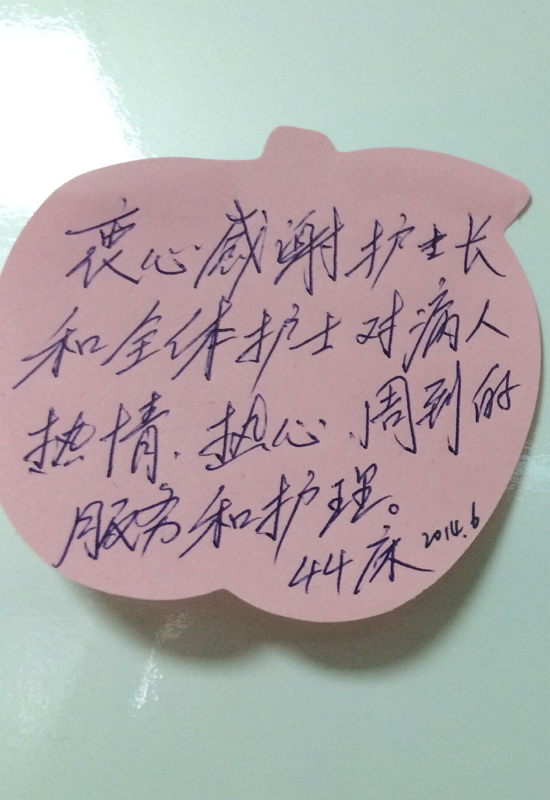 衷心感谢护士长
和全体护士对病人
热情、热心、周到的
服务和护理。
44床 2014.6